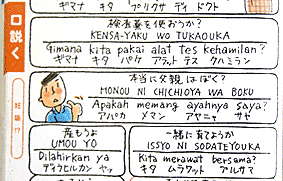 ギマナ キタ プリクサ ディ ドクトル
口説く
検査薬を使おうか?
KENSA-YAKU WO TUKAOUKA
Gimana kita pakai alat tes kehamilan?
ギマナ キタ パケ アラッ テス クハミラン
妊娠!?
本当に父親はぼく?
MONOU NI CHICHIOYA WA BOKU
Apakah memang ayahnya saya?
アパカ メマン アヤニャ サヤ
産もうよ
UMOU YO
Dilahirkan ya
ディラヒルカン ヤッ
一緒に育てようか
ISSYO NI SODATEYOUKA
Kita merawat bersama?
キタ ムラワット ブルサマ